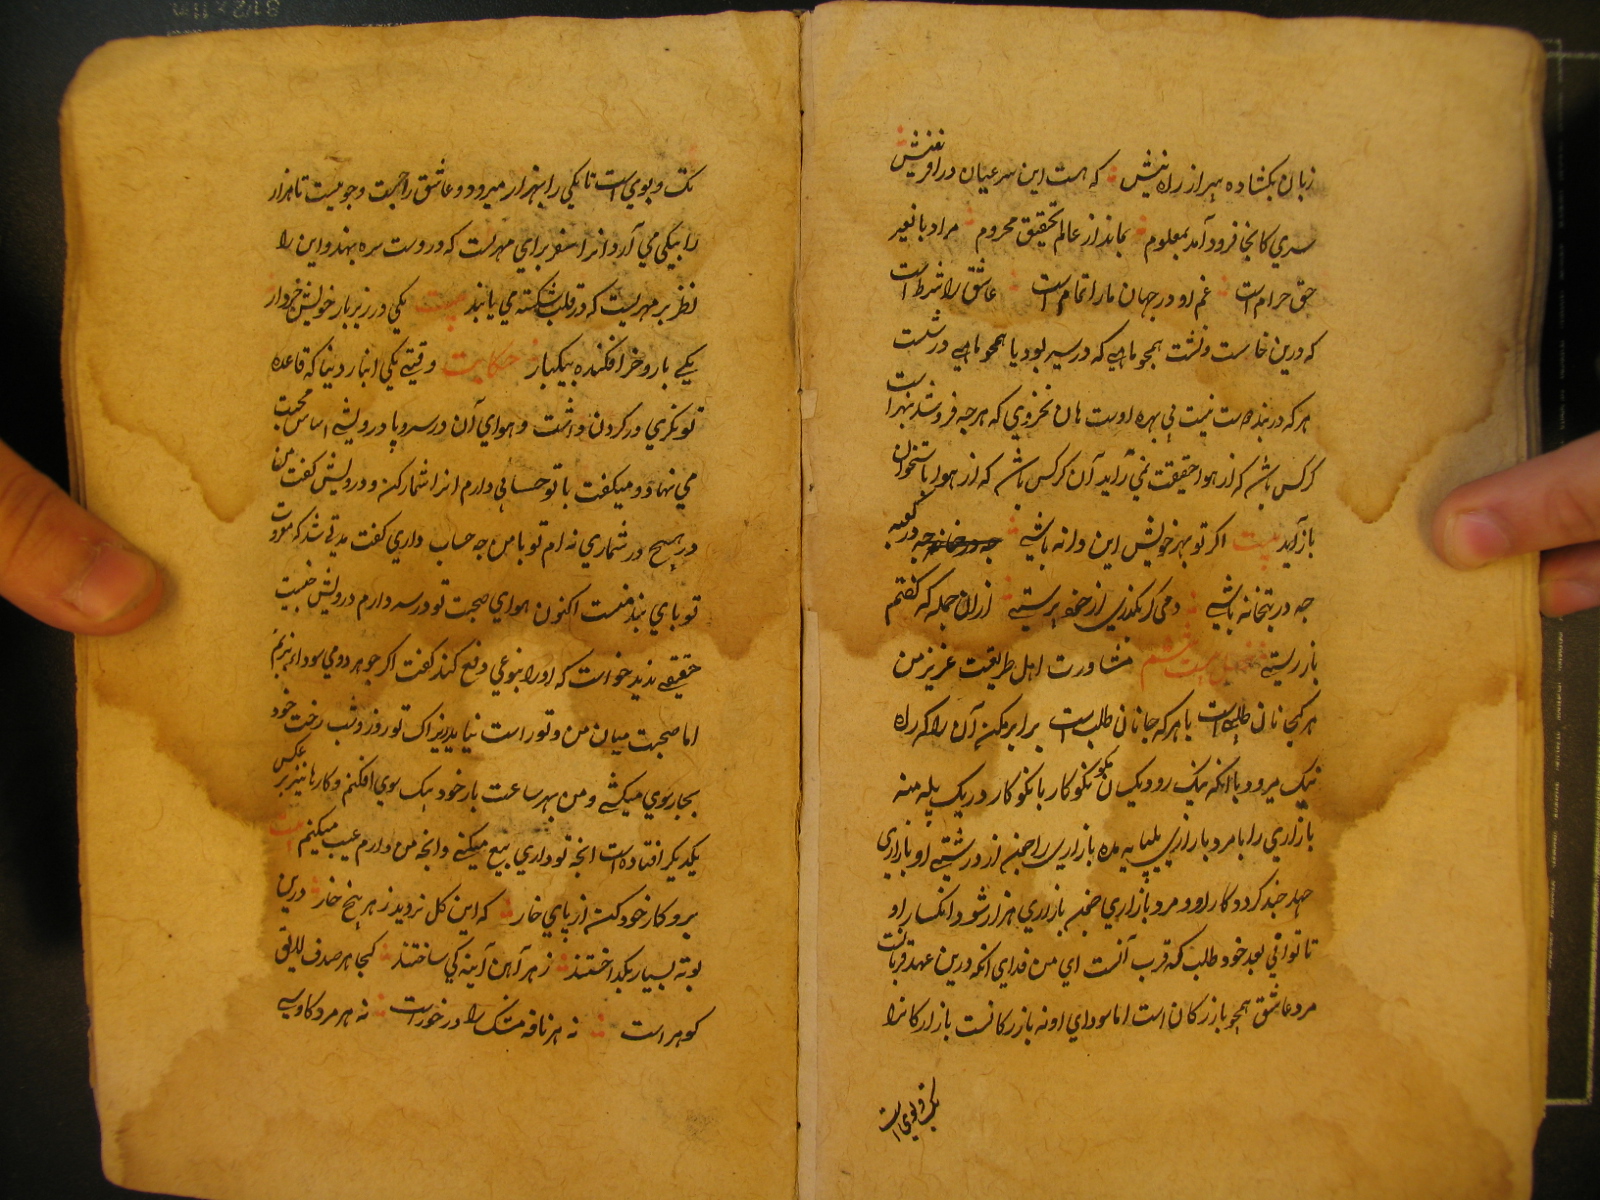 زبان بکشاده بهر از راه بینش که هست این سر عیان در آفرینش
سری کانجا فرود آمد بمعلوم بماند از عالم تحقیق محروم مراد با غیر
حق حرام است غم او در جهان ما را تمام است عاشق را شرط است
که درین خاست و نشست همچو ماهی که در سیر بود یا همچو ماهی در شست
هر که در بند هست نیست بی بهره اوست هان نخروی که هر چه فروشد بهر است
کرکس باش که از هوا حقیقت نمی زاید آن کرکس باش که از هوا باستخوان
باز آید بیت اکر تو بهر خویش این دانه باشی چه در خانه چه در کعبه
چه در بتخانه باشی دمی کر بکذری از خود پرستی ازان جمله که کفتم
باز رستی مشاورت اهل طریقت عزیز من
هر کجا نان طلب است با هر که جانان طلب است برابر مکن آن را که راه
نیک میرود با انکه نیک رود یک نکوکار با نکوکار در یک پله منه
بازاری را با مرد بازاری هم پایه مده بازاری را از درشتی او بازاری
صد چند کردد کار او و مرد بازاری بازاری هزار شود انکسار او
تا توانی بعد خود طلب که قرب آنست ای من فدای انکه درین عهد قربانست
مرد عاشق همچو بازرکان است اما سودای او نه بازرکانست بازارکانرا
تک و بوی است
تک و بوی است تا یکی را بهزار میرود و عاشق را جست و جویست تا هزار
را بیکی می آرد انرا سفر برای مهریست که در وست سره بهند و این را
نظر بر مهریست که در قلب شکسته می یابند بیت یکی در زیر بار خویش خروار
یکی بار و خر افکنده بیکبار حکایت وقتی یکی انبار دنیا که قاعده
تونکری در کردن داشت و هوای آن در سر و پا درویشی اساس محبت
می نهاد و میکفت با تو حسابی دارم انرا شمار کن و درویش کفت من
در هیچ در شماری نه ام تو با من چه حساب داری کفت مدتی شد که مروت
تو پای بند منست اکنون هوای صحبت تو در سر دارم درویش جنسیت
حقیقی ندید خواست که او را بنوعی دفع کند کفت اکر چو هر دو می سودا پزیم
اما صحبت میان من و تو راست نیاید زیراک تو روز و شب رخت خود
بجار سوی میکشی و من بهر ساعت بار خود بیک سوی افکنم و کارها نیز بر عکس
یکدیکر افتاده است انچه تو داری بیع میکنی و انچه من دارم عیب میکنم بیت
برو کار خود کن از پای خار که این کل نروید ز هر بیخ خار درین
بوته بسیار بکداختند ز هر آهن آینه کی ساختند کجا هر صدف لایق
کوهر است نه هر نافه مشک را در خور است نه هر مرد کاوسی